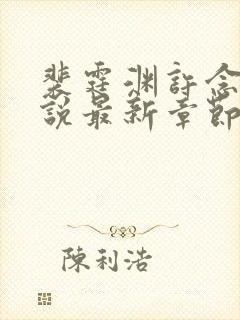 裴霆渊許念
說最新章節
陳利浩